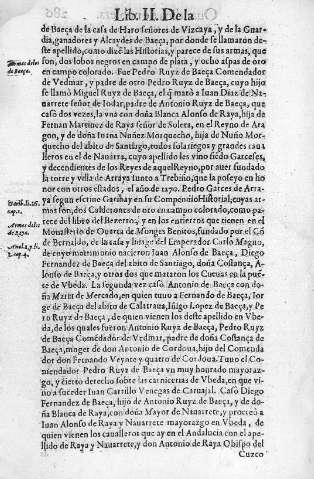 Lib. II. De la
de Baeça de la casa de Haro señores de Vizcaya, y de la Guar-
dia, ganadores y Alcaydes de Baeça, por donde se llamaron deste
apellido, como dizē las Historias, y parece de sus armas, que
son, dos lobos negros en campo de plata, y ocho aspas de oro
en campo colorado. Fue Pedro Ruyz de Baeça Comendador
de Vedmar, y padre de otro Pedro Ruyz de Baeça, cuyo hijo
se llamò Miguel Ruyz de Baeça, el q̄ marò a Iuan Diaz de Na-
uarrete señor de Iodar, padre de Antonio Ruyz de Baeça, que
casò dos vezes, la vna con doña Blanca Alonso de Raya, hija de
Fernan Martinez de Raya señor de Solera, en el Reyno de Ara-
gon, y de doña Iorna Nuñez Morquecho, hija de Nuño Mor-
quecho del abito de Santiago, todos solariegos y grandes caua
lleros en el de Nauarra, cuyo apellido les vino siēdo Garceses,
y decendientes de los Reyes de aquel Reyno, por auer fundado
la torre y villa de Arraya junto a Trebiño, que la posseyo en ho
nor con otros estados, el año de 1170. Pedro Garces de Arra-
ya segun escriue Garibay en su Compendio Historial, cuyas ar
mas son, dos Calderas de oro en campo colorado, como pa-
rece del libro del Bezerro, y en los entierros que tienen en el
Monasterio de Oxarta de Monges Benitos, fundado por el Cō
de Bernaldo, de la casa y linage del Emperador Carlo Magno,
de cuyo matrimonio nacieron Iuan Alonso de Baeça, Diego
Fernandez de Baeça del abito de Santiago, doña Costança, A-
lonso de Baeça, y otros dos que mataron los Cueuas en la puē-
te de Vbeda. La segunda vez casò Antonio de Baeça con do
ña Marit de Mercado, en quien tuuo a Fernando de Baeça, Ior
ge de Baeça del abito de Calatraua, Iñigo Lopez de Baeça, y Pe
dro Ruyz de Baeça, de quien vienen los deste apellido en Vbe-
da, de los quales fueron Antonio Ruyz de Baeça, Pedro Ruyz
de Baeça Comēdador de Vedmar, padre de doña Costança de
Baeça, muger de don Antonio de Cordoua, hijo del Comenda
dor don Fernando Veynte y quatro de Cordoua. Tuuo el Co-
mendador Pedro Ruyz de Baeça vn muy honrado mayoraz-
go, y cierto derecho sobre las carnicerias de Vbeda, en que vi-
no a suceder Iuan Carrillo Venegas de Caruajal. Casò Diego
Fernandez de Baeça, hijo de Antonio Ruyz de Baeça, y de do-
ña Blanca de Raya, con doña Mayor de Nauarrete, y procreò a
Iuan Alonso de Raya y Nauarrete mayorazgo en Vbeda, de
quien vienen los caualleros que ay en el Andaluzia con el ape-
llido de Raya y Nauarrete, y don Antonio de Raya Obispo del
Cuzco
Armas delos
de Baeça.
Armas delos